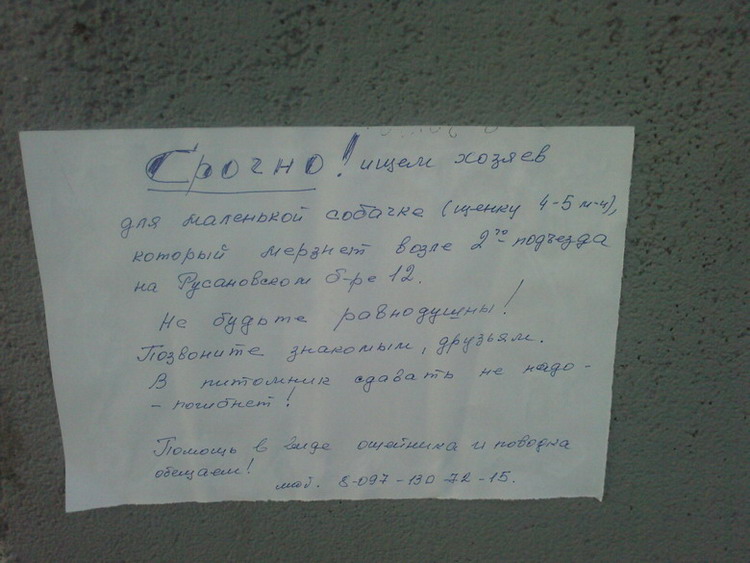 Срочно! ищем хозяев
для маленькой собачке (щенку 4-5 м-ц),
который мерзнет возле 2го подъезда
на Русановском б-ре 12.
Не будьте равнодушны!
Позвоните знакомым, друзьям.
В питомник сдавать не надо-
- погибнет!
Помощь в виде ошейника и поводка
обещаем!
моб. 8-097-130-72-15.